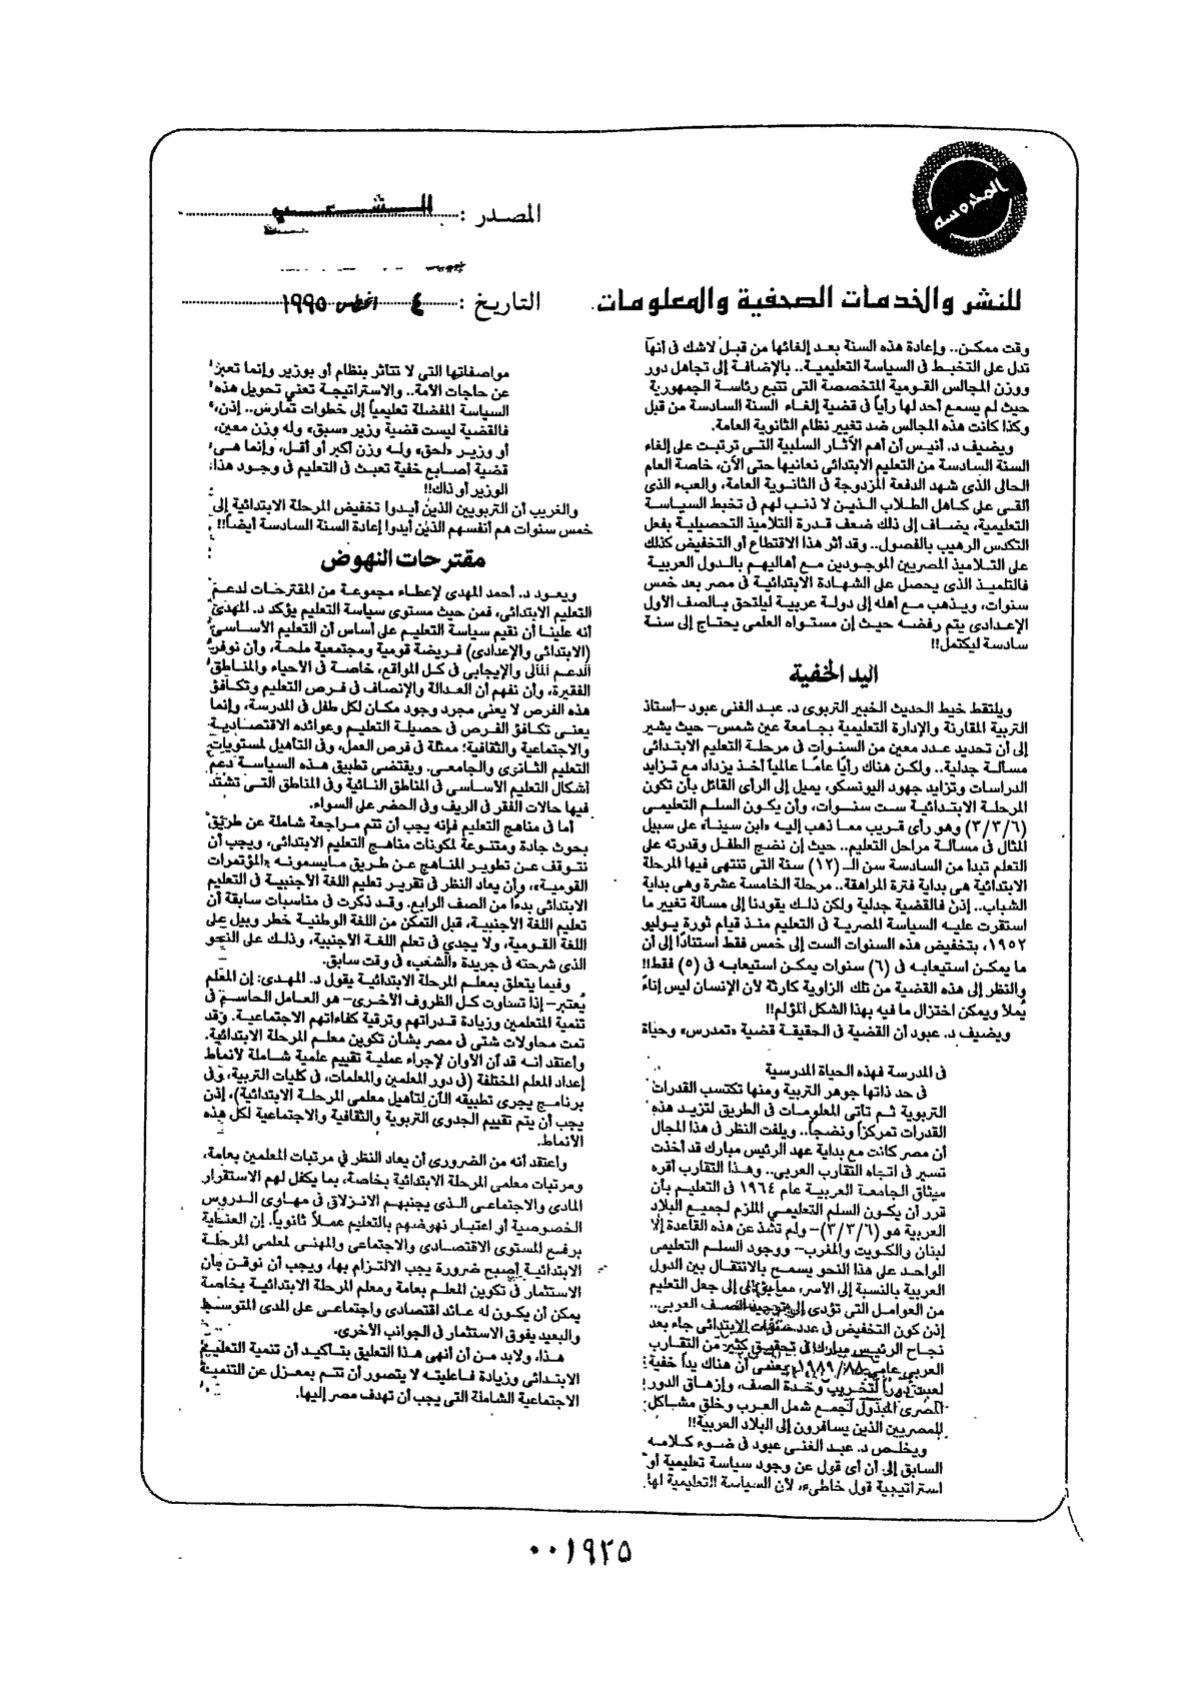 المحروسة
المصدر : الشعب
التاريخ : ٤ اغسطس ١٩٩٥
للنشر والخدمات الصحفية والمعلومات
وقت ممكن.. وإعادة هذه السنة بعد إلغائها من قبل لاشك فى أنها
تدل على التخبط فى السياسة التعليمية.. بالإضافة إلى تجاهل دور
ووزن المجالس القومية المتخصصة التى تتبع رئاسة الجمهورية
حيث لم يسمع أحد لها رأياً فى قضية إلغاء السنة السادسة من قبل
وكذا كانت هذه المجالس ضد تغيير نظام الثانوية العامة.
ويضيف د. أنيس أن أهم الآثار السلبية التى ترتبت على إلغاء
السنة السادسة من التعليم الابتدائى نعانيها حتى الآن، خاصة العام
الحالى الذى شهد الدفعة المزدوجة فى الثانوية العامة، والعبء الذى
ألقى على كاهل الطلاب الذين لا ذنب لهم فى تخبط السياسة
التعليمية، يضاف إلى ذلك ضعف قدرة التلاميذ التحصيلية بفعل
التكدس الرهيب بالفصول.. وقد أثر هذا الاقتطاع أو التخفيض كذلك
على التلاميذ المصريين الموجودين مع أهاليهم بالدول العربية
فالتلميذ الذى يحصل على الشهادة الابتدائية فى مصر بعد خمس
سنوات، ويذهب مع أهله إلى دولة عربية ليلتحق بالصف الأول
الإعدادى يتم رفضه حيث إن مستواه العلمى يحتاج إلى سنة
سادسة ليكتمل!!
اليد الخفية
ويلتقط خيط الحديث الخبير التربوى د. عبد الغنى عبود –أستاذ
التربية المقارنة والإدارة التعليمية بجامعة عين شمس– حيث يشير
إلى أن تحديد عدد معين من السنوات فى مرحلة التعليم الابتدائى
مسألة جدلية.. ولكن هناك رأيا عاما عالمياً أخذ يزداد مع تزايد
الدراسات وتزايد جهود اليونسكو، يميل إلى الرأى القائل بأن تكون
المرحلة الابتدائية ست سنوات، وأن يكون السلم التعليمى
(٣/٣/٦) وهو رأى قريب مما ذهب إليه «ابن سينا» على سبيل
المثال فى مسألة مراحل التعليم.. حيث إن نضج الطفل وقدرته على
التعلم تبدا من السادسة سن الـ (١٢) سنة التى تنتهى فيها المرحلة
الابتدائية هى بداية فترة المراهقة.. مرحلة الخامسة عشرة وهى بداية
الشباب.. إذن فالقضية جدلية ولكن ذلك يقودنا إلى مسالة تغيير ما
استقرت عليه السياسة المصرية فى التعليم منذ قيام ثورة يوليو
١٩٥٢، بتخفيض هذه السنوات الست إلى خمس فقط استنادًا إلى أن
ما يمكن استيعابه فى (٦) سنوات يمكن استيعابه فى (٥) فقط!!
والنظر إلى هذه القضية من تلك الزاوية كارثة لأن الإنسان ليس إناءً
يُملأ ويمكن اختزال ما فيه بهذا الشكل المؤلم!!
ويضيف د. عبود أن القضية فى الحقيقة قضية «تمدرس» وحياة
فى المدرسة فهذه الحياة المدرسية
فى حد ذاتها جوهر التربية ومنها تكتسب القدرات
التربوية ثم تأتى المعلومات فى الطريق لتزيد هذه
القدرات تمركزاً ونضجاً.. ويلفت النظر فى هذا المجال
أن مصر كانت مع بداية عهد الرئيس مبارك قد أخذت
تسير فى اتجاه التقارب العربى.. وهذا التقارب أقره
ميثاق الجامعة العربية عام ١٩٦٤ فى التعليم بأن
قرر أن يكون السلم التعليمى الملزم لجميع البلاد
العربية هو (٣/٣/٦)– ولم تشذ عن هذه القاعدة إلا
لبنان والكويت والمغرب– ووجود السلم التعليمى
الواحد على هذا النحو يسمح بالانتقال بين الدول
العربية بالنسبة إلى الأسر، مما يؤدى إلى جعل التعليم
من العوامل التى تؤدى إلى توحيد الصف العربى..
إذن كون التخفيض فى عدد سنوات الابتدائى جاء بعد
نجاح الرئيس مبارك فى تحقيق كثير من التقارب
العربى عامى ١٩٨٩/٨٨، يعنى أن هناك يداً خفية
لعبت دوراً لتخريب وحدة الصف، وإزهاق الدور
المصرى المبذول لجمع شمل العرب وخلق مشاكل
للمصريين الذين يسافرون إلى البلاد العربية!!
ويخلص د. عبد الغنى عبود فى ضوء كلامه
السابق إلى أن أى قول عن وجود سياسة تعليمية أو
استراتيجية قول خاطىء، لأن السياسة التعليمية لها
مواصفاتها التى لا تتأثر بنظام أو بوزير وإنما تعبر
عن حاجات الأمة.. والاستراتيجة تعنى تحويل هذه
السياسة المفضلة تعليمياً إلى خطوات تمارس.. إذن،
فالقضية ليست قضية وزير «سبق» وله وزن معين،
أو وزير «لحق» وله وزن أكبر أو أقل، وإنما هى
قضية أصابع خفية تعبث فى التعليم فى وجود هذا
الوزير أو ذاك!!
والغريب أن التربويين الذين أيدوا تخفيض المرحلة الابتدائية إلى
خمس سنوات هم أنفسهم الذين أيدوا إعادة السنة السادسة أيضاً!!
مقترحات النهوض
ويعود د. أحمد المهدى لإعطاء مجموعة من المقترحات لدعم
التعليم الابتدائى، فمن حيث مستوى سياسة التعليم يؤكد د. المهدى
أنه علينا أن نقيم سياسة التعليم على أساس أن التعليم الأساسى
(الابتدائى والإعدادى) فريضة قومية ومجتمعية ملحة، وأن نوفر
الدعم المالى والإيجابى فى كل المواقع، خاصة فى الأحياء والمناطق
الفقيرة، وأن نفهم أن العدالة والإنصاف فى فرص التعليم وتكافؤ
هذه الفرص لا يعنى مجرد وجود مكان لكل طفل فى المدرسة، وإنما
يعنى تكافؤ الفرص فى حصيلة التعليم وعوائده الاقتصادية
والاجتماعية والثقافية؛ ممثلة فى فرص العمل، وفى التأهيل لمستويات
التعليم الثانوى والجامعى. ويقتضى تطبيق هذه السياسة دعم
أشكال التعليم الأساسى فى المناطق النائية وفى المناطق التى تشتد
فيها حالات الفقر فى الريف وفى الحضر على السواء.
أما فى مناهج التعليم فإنه يجب أن تتم مراجعة شاملة عن طريق
بحوث جادة ومتنوعة لمكونات مناهج التعليم الابتدائى، ويجب أن
نتوقف عن تطوير المناهج عن طريق مايسمونه «المؤتمرات
القومية»، وأن يعاد النظر فى تقرير تعليم اللغة الأجنبية فى التعليم
الابتدائى بدءًا من الصف الرابع. وقد ذكرت فى مناسبات سابقة أن
تعليم اللغة الأجنبية، قبل التمكن من اللغة الوطنية خطر وبيل على
اللغة القومية، ولا يجدى فى تعلم اللغة الأجنبية، وذلك على النحو
الذى شرحته فى جريدة «الشعب» فى وقت سابق.
وفيما يتعلق بمعلم المرحلة الابتدائية يقول د. المهدى: إن المعلم
يُعتبر– إذا تساوت كل الظروف الأخرى– هو العامل الحاسم فى
تنمية المتعلمين وزيادة قدراتهم وترقية كفاءاتهم الاجتماعية. وقد
تمت محاولات شتى فى مصر بشأن تكوين معلم المرحلة الابتدائية.
وأعتقد انه قد أن الأوان لإجراء عملية تقييم علمية شاملة لأنماط
إعداد المعلم المختلفة (فى دور المعلمين والمعلمات، فى كليات التربية، وفى
برنامج يجرى تطبيقه الآن لتأهيل معلمى المرحلة الابتدائية)، إذن
يجب أن يتم تقييم الجدوى التربوية والثقافية والاجتماعية لكل هذه
الانماط.
وأعتقد أنه من الضرورى أن يعاد النظر فى مرتبات المعلمين بعامة،
ومرتبات معلمى المرحلة الابتدائية بخاصة، بما يكفل لهم الاستقرار
المادى والاجتماعى الذى يجنبهم الانزلاق فى مهاوى الدروس
الخصوصية أو اعتبار نهوضهم بالتعليم عملاً ثانوياً. إن العناية
برفع المستوى الاقتصادى والاجتماعى والمهنى لمعلمى المرحلة
الابتدائية أصبح ضرورة يجب الالتزام بها، ويجب أن نوقن بأن
الاستثمار فى تكوين المعلم بعامة ومعلم المرحلة الابتدائية بخاصة
يمكن أن يكون له عائد اقتصادى واجتماعى على المدى المتوسط
والبعيد يفوق الاستثمار فى الجوانب الأخرى.
هذا، ولابد من أن أنهى هذا التعليق بتأكيد أن تنمية التعليم
الابتدائى وزيادة فاعليته لا يتصور أن تتم بمعزل عن التنمية
الاجتماعية الشاملة التى يجب أن تهدف مصر إليها.
٠٠١٩٢٥